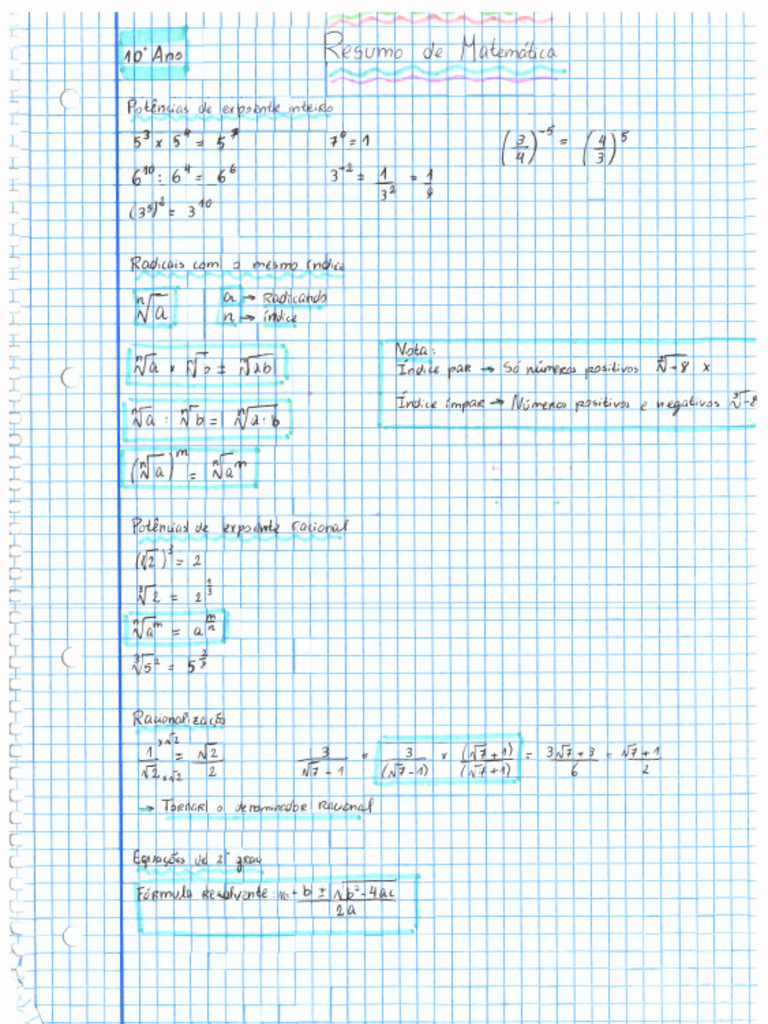 10º Ano
Resumo de Matemática
Potências de expoente inteiro
5³ × 5⁴ = 5⁷
7⁰ = 1
(3/4)⁻⁵ = (4/3)⁵
6¹⁰ : 6⁴ = 6⁶
3⁻² = 1/3² = 1/9
(3⁵)² = 3¹⁰
Radicais com o mesmo índice
ⁿ√a
a → Radicando
n → índice
ⁿ√a × ⁿ√b = ⁿ√ab
ⁿ√a : ⁿ√b = ⁿ√a:b
(ⁿ√a)ᵐ = ⁿ√aᵐ
Nota:
Índice par → Só números positivos √-8 ×
Índice ímpar → Números positivos e negativos ³√-8
Potências de expoente racional
(√2)³ = 2
³√2 = 2^(1/3)
ⁿ√aᵐ = a^(m/n)
³√5² = 5^(2/3)
Racionalização
1/√2 ×√2 ×√2 = √2/2
3/(√7 - 1) = 3/(√7-1) × (√7+1)/(√7+1) = (3√7+3)/6 = (√7+1)/2
→ Tornar o denominador racional
Equações de 2º grau
Fórmula Resolvente: (-b ± √b²-4ac)/2a